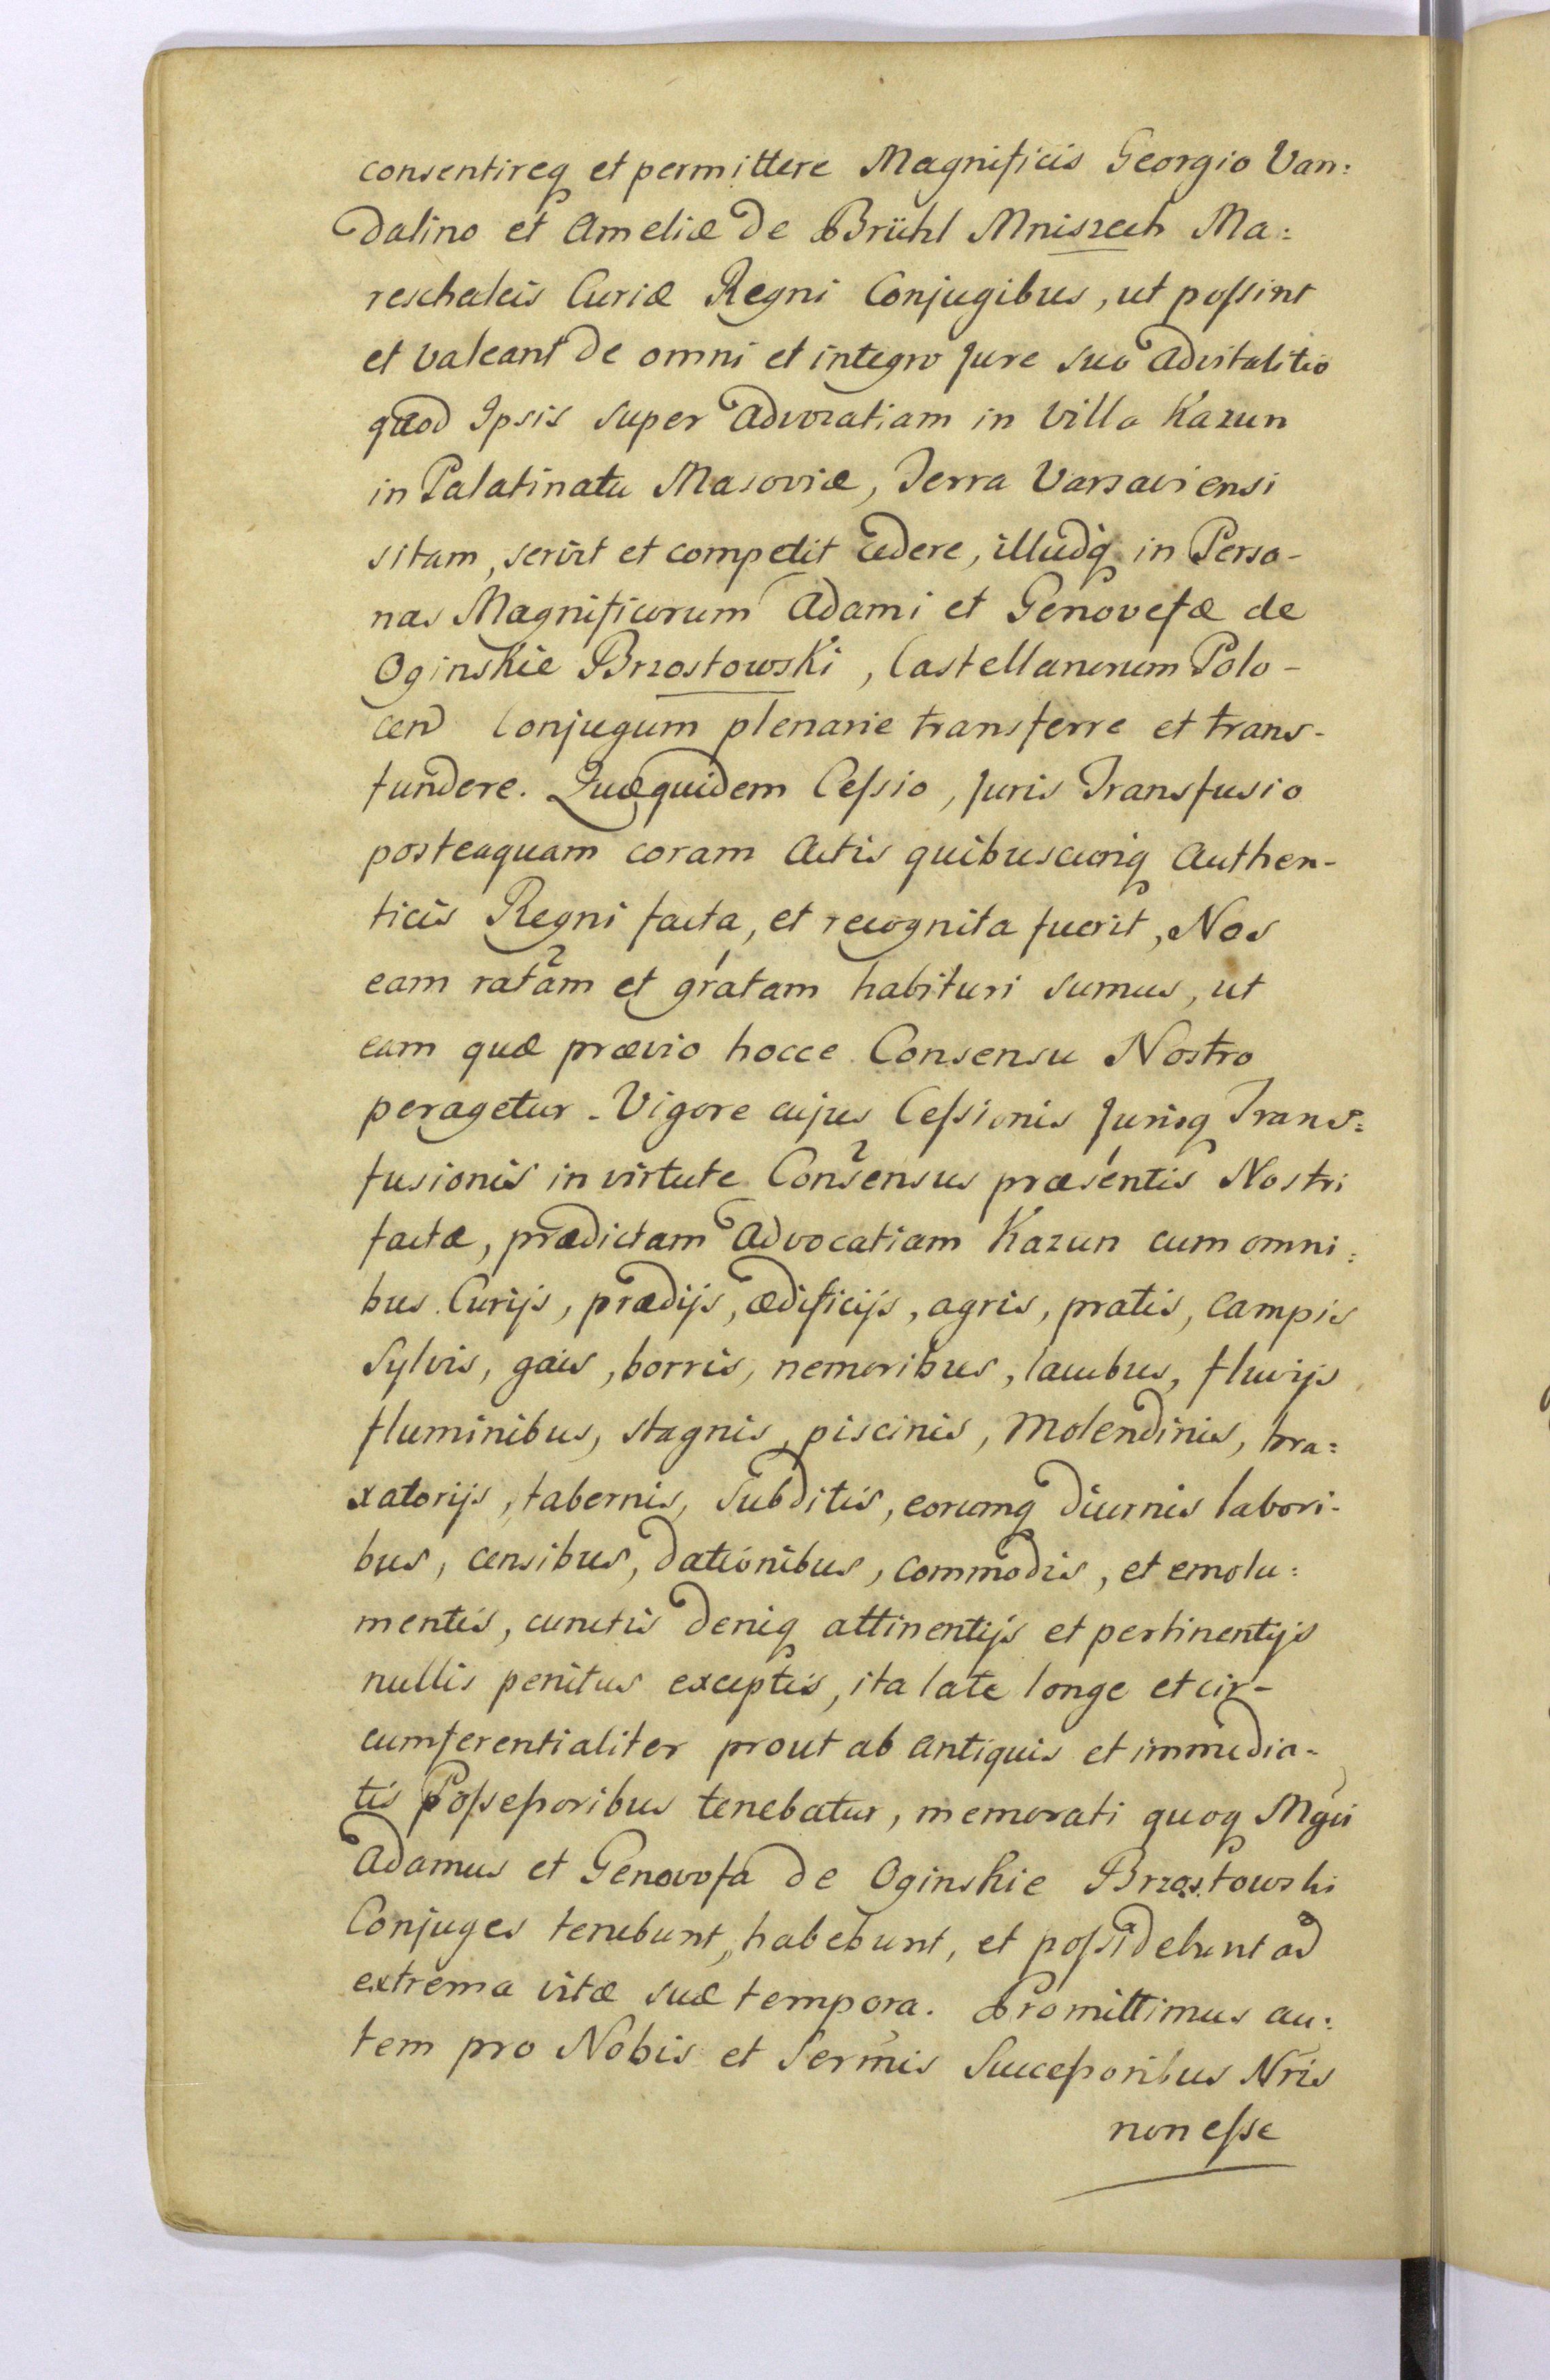 consentireq et permittere Magnificis Georgio Van:
dalino et Ameliæ de Brühl Mniszech Ma:
reschalcis Curiæ Regni Conjugibus, ut possint
et valeant de omni et integro Jure suo advitalitio
quod Ipsis super advocatiam in Villa Kazun
in Palatinatu Masoviæ, Terra Varsaviensi
sitam, servit et competit cedere, illudq in Perso-
nas Magnificorum Adami et Genovefæ de
Oginskie Brzostowski, Castellanorum Polo-
cen Conjugum plenarie transferre et trans-
fundere. Quæquidem Cessio, Juris Transfusio
posteaquam coram Actis quibuscunq Authen-
ticis Regni facta, et recognita fuerit, Nos
eam ratam et gratam habituri sumus, ut
eam quæ prævio hocce Consensu Nostro
peragetur. Vigore cujus Cessionis Jurisq Trans:
fusionis in virtute Consensus præsentis Nostri
factæ, prædictam Advocatiam Kazun cum omni:
bus Curijs, prædijs, ædificijs, agris, pratis, campis
Sylvis, gais, borris, nemoribus, lacubus, fluvijs
fluminibus, stagnis, piscinis, Molendinis, bra:
xatorijs, tabernis, subditis, eorumq diurnis labori-
bus, censibus, dationibus, commodis, et emolu:
mentis, cunctis deniq attinentijs et pertinentijs
nullis penitus exceptis, ita late longe et cir-
cumferentialiter prout ab antiquis et immedia-
tis Possessoribus tenebatur, memorati quoq Mgci
Adamus et Genovefa de Oginskie Brzostowski
Conjuges tenebunt, habebunt, et possidebunt ad
extrema vitæ suæ tempora. Promittimus au:
tem pro Nobis et Sermis Successoribus Nris
non esse